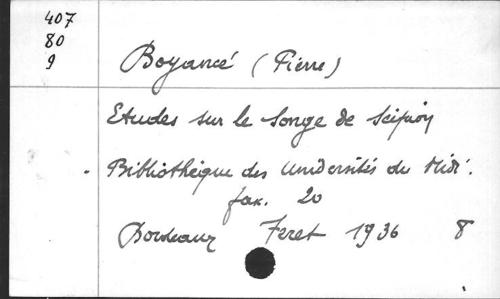 407
80
9
Boyancé (Pierre)
Etudes sur le Songe de Scipion
Bibliothèque des Universités du Midi.
fax. 20
Bordeaux Feret 1936 8